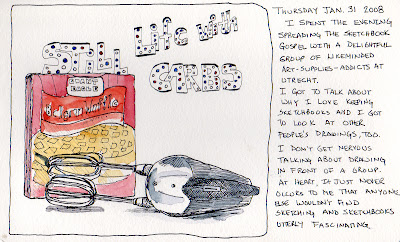 STILL
Life with
CARBS
THURSDAY JAN. 31 2008
I SPENT THE EVENING
SPREADING THE SKETCHBOOK
GOSPEL WITH A DELIGHTFUL
GROUP OF LIKEMINDED
ART-SUPPLIES-ADDICTS AT
UTRECHT.
I GOT TO TALK ABOUT
WHY I LOVE KEEPING
SKETCHBOOKS AND I GOT
TO LOOK AT OTHER
PEOPLE'S DRAWINGS, TOO.
I DON'T GET NERVOUS
TALKING ABOUT DRAWING
IN FRONT OF A GROUP.
AT HEART, IT JUST NEVER
OCCURS TO ME THAT ANYONE
ELSE WOULDN'T FIND
SKETCHING AND SKETCHBOOKS
UTTERLY FASCINATING.